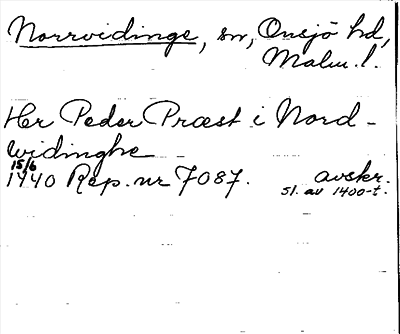 Norrvidinge, sn, Onsjö hd,
Malm. l.
Her Peder Præst i Nord-
widinghe
15/6
1440 Rep. nr 7087. avskr.
sl. av 1400-t.